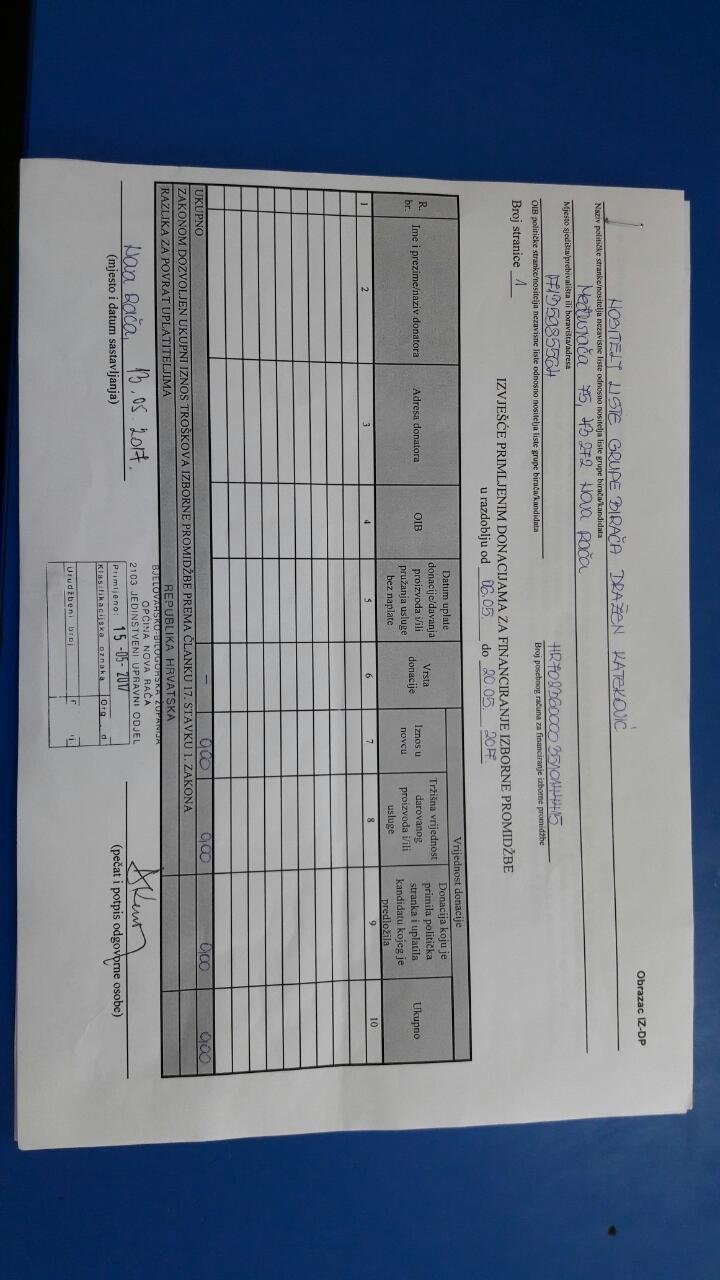 Obrazac IZ-DP
NOSITELJ LISTE GRUPE BIRAČA DRAŽEN
Naziv političke stranke/nositelja nezavisne liste odnosno nositelja liste grupe birača/kandidata
75, 43 272 NOVA RAČA
Mjesto sjedišta/prebivališta ili boravišta/adresa
OIB političke stranke/nositelja nezavisne liste odnosno nositelja liste grupe birača/kandidata
Broj posebnog računa za financiranje izborne promidžbe
Broj stranice 1
IZVJEŠĆE PRIMLJENIM DONACIJAMA ZA FINANCIRANJE IZBORNE PROMIDŽBE
u razdoblju od 06.05 do 20.05 2017
R. br.
Ime i prezime/naziv donatora
Adresa donatora
OIB
Datum uplate donacije/davanja proizvoda i/ili pružanja usluge bez naplate
Vrsta donacije
Vrijednost donacije
Iznos u novcu
Tržišna vrijednost darovanog proizvoda i/ili usluge
Donacija koju je primila politička stranka i uplatila kandidatu kojeg je predložila
Ukupno
1 2 3 4 5 6 7 8 9 10
UKUPNO – 0,00 0,00 0,00 0,00
ZAKONOM DOZVOLJEN UKUPNI IZNOS TROŠKOVA IZBORNE PROMIDŽBE PREMA ČLANKU 17. STAVKU 1. ZAKONA
RAZLIKA ZA POVRAT UPLATITELJIMA
REPUBLIKA HRVATSKA
BJELOVARSKO-BILOGORSKA ŽUPANIJA
OPĆINA NOVA RAČA
2103 JEDINSTVENI UPRAVNI ODJEL
Primljeno: 15-05-2017
Klasifikacijska oznaka Org. d
Urudžbeni broj
Nova Rača, 13.05.2017.
(mjesto i datum sastavljanja)
(pečat i potpis odgovorne osobe)